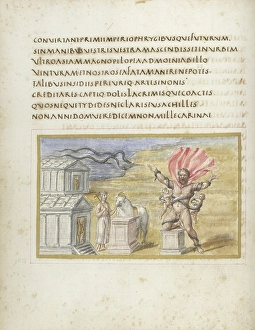 CONVIRIANIPRIMIIMPERIOPHRYGIBUSQUEFUTURUM
SINMANIBUSUISTRISUISTRAMASCINDISSETINURBEM
ULTROASIAMMAGNOPELOPEAADMOINIABELLO
UINTURAMETNOSTROSIAFATAMANERENEPOTIS
TALIBUSINSIDIISPERIURIQARTESINONIS
CREDITARESCAPTIQDOLISLACRIMISQUECOACTIS
QUOSNEQUETYDIDESNECLARISEUSACHILLIS
NONANNIDOMUEREDICEMNONMILLECARINAE